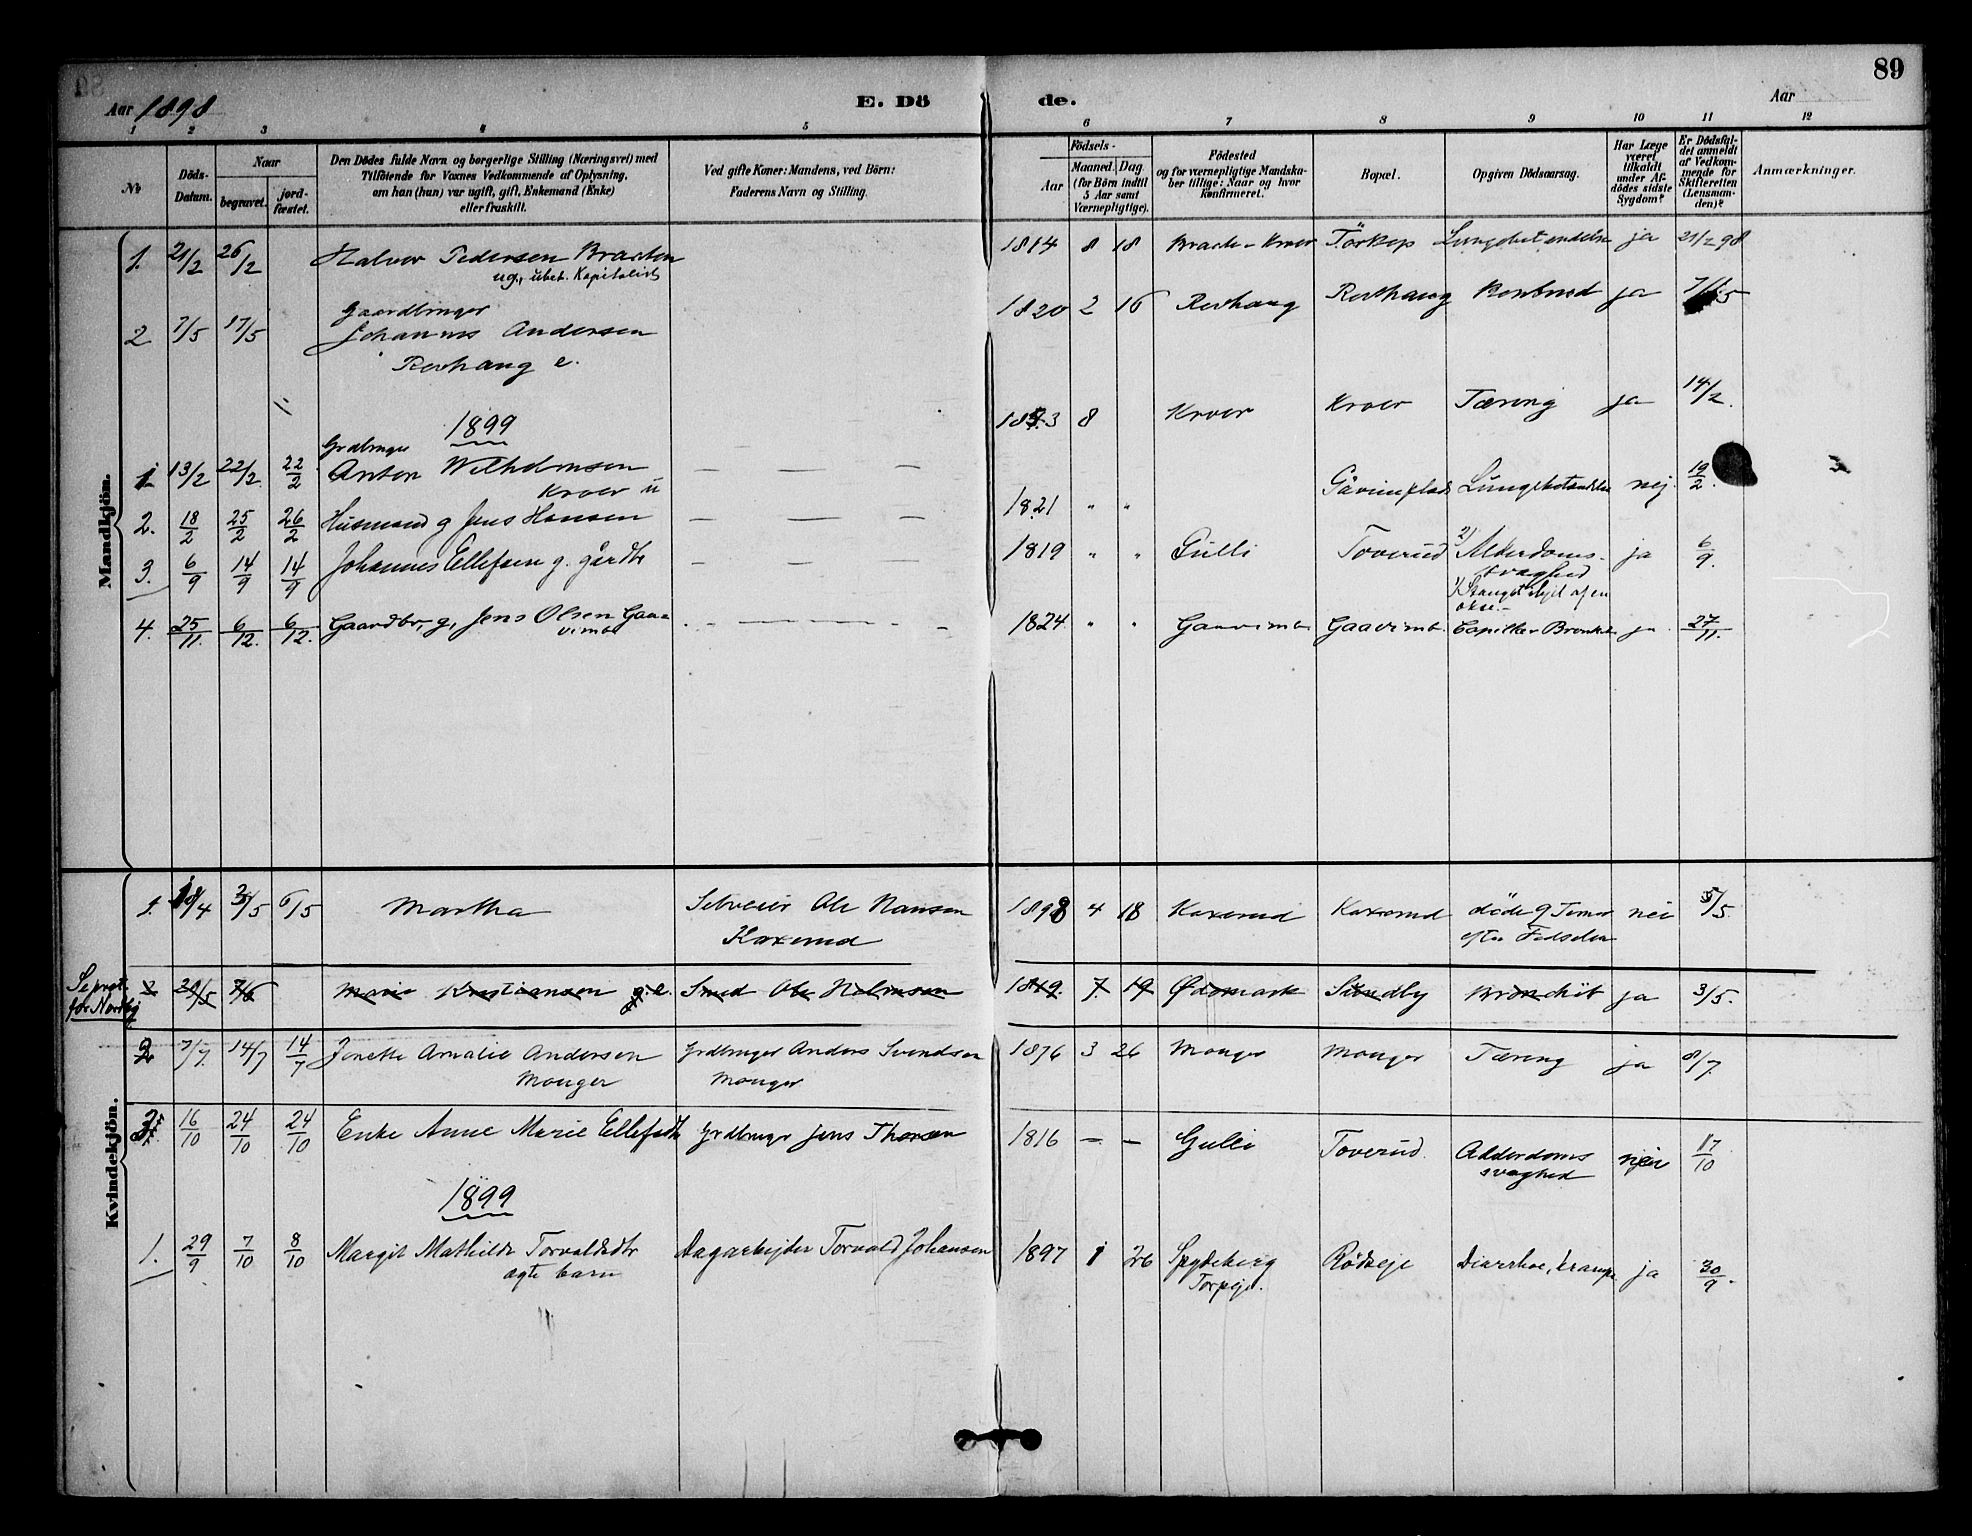 89
Aar 1898
E. Dö de.
Aar
1 2 3 4 5 6 7 8 9 10 11 12
No
Döds-Datum.
Naar
begravet.
jord-fæstet.
Den Dödes fulde Navn og borgerlige Stilling (Næringsvei) med
Tilföiende for Voxnes Vedkommende af Oplysning,
om han (hun) var ugift, gift, Enkemand (Enke)
eller fraskilt.
Ved gifte Koner: Mandens, ved Börn:
Faderens Navn og Stilling.
Födsels-
Aar
Maaned. Dag
(for Börn indtil
5 Aar samt
Værnepligtige).
Födested
og for værnepligtige Mandska-
ber tillige: Naar og hvor
konfirmeret.
Bopæl.
Opgiven Dödsaarsag.
Har Læge
været
tilkaldt
under Af-
dödes sidste
Sygdom?
Er Dödsfal-
det anmeldt
af Vedkom-
mende for
Skifteretten
(Lensman-
den)?
Anmærkninger.
Mandkjön.
1. 21/2 26/2 Halvor Pedersen Braaten 1814 8 18 Kroer ja 21/2 98
ug., ubet. Kapitalist
Gaardbruger
2 7/5 17/5 Johannes Andersen 1820 2 16 Revhaug Revhaug ja
Revhaug e.
1899
Grdbruger
1 13/2 22/2 22/2 Anton Wilhelmsen 8 Kroer Kroer Tæring ja 14/2.
Kroer u
2. 18/2 25/2 26/2 Husmand g Jens Hansen 1821 " " nej. 19/2.
3. 6/9 14/9 14/9 Johannes Ellefsen g. gårdbr 1819 " " Gulli Toverud 2) Alderdoms- ja 6/9.
svaghed
1) Stanget ihjel af en
okse.-
4. 25/11. 6/12. 6/12. Gaardbr. g. Jens Olsen Gaa-
vimb 1824 " " Gaavimb. Gaavimb. ja 27/11.
Kvindekjön.
1. 18/4 6/5 Martha Selveier Ole Hansen 1898 4 18 Kaxerud Kaxerud döde 9 Timer nei 5/5.
Kaxerud efter Fødselen
for Nordby
2 7/6 Marie Kristiansen g.e. Smed Ole Helmersen 1819. 7. 19 Ødemark Sundby Bronchit ja 3/5.
2 7/7. 14/7 14/7 Jonette Amalie Andersen Grdbruger Anders Svendsen 1876 3 26 Monger Monger Tæring ja 8/7.
Monger Monger
3 16/10 24/10 24/10 Enke Anne Marie Ellefsdtr Grdbruger Jens Thoresen 1816 – – Gulli Toverud. Alderdoms nei 17/10
svaghed
1899
1. 29/9 7/10 8/10 Margit Mathilde Torvaldsdtr Dagarbejder Torvald Johansen 1897 1 26 Spydeberg Rödseje Diarrhoe, krampe ja 30/9.
ægte barn Torpeje.